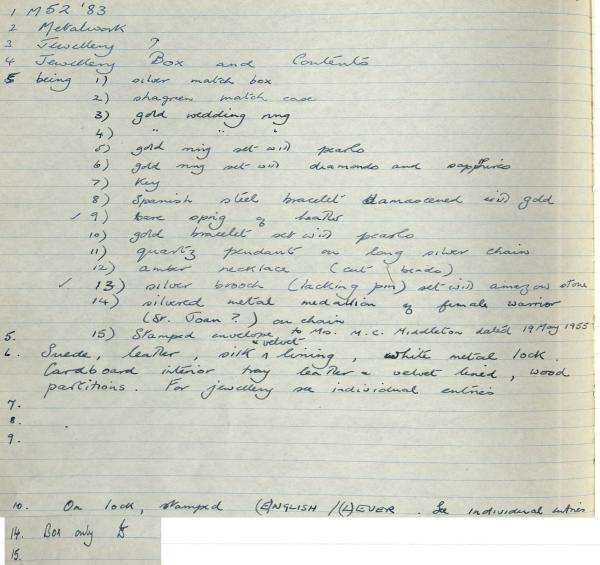 1 M52 '83
2 Metalwork
3 Jewellery ?
4 Jewellery Box and Contents
5 being 1) silver match box
2) shagreen match case
3) gold wedding ring
4) " " "
5) gold ring set with pearls
6) gold ring set with diamonds and sapphires
7) Key
8) Spanish steel bracelet damascened with gold
✓ 9) bare sprig of heather
10) gold bracelet set with pearls
11) quartz pendant on long silver chain
12) amber necklace (cut beads)
✓ 13) silver brooch (lacking pin) set with amazon stone
14) silvered metal medallion of female warrior
(St. Joan?) on chain
5. 15) Stamped envelope to Mrs. M.C. Middleton dated 19 May 1955
6. Suede, leather, silk & velvet lining, white metal lock.
Cardboard interior tray leather & velvet lined, wood
partitions. For jewellery see individual entries
7.
8.
9.
10. On lock, stamped (E)NGLISH /(L)EVER. See individual entries
14. Box only
15.